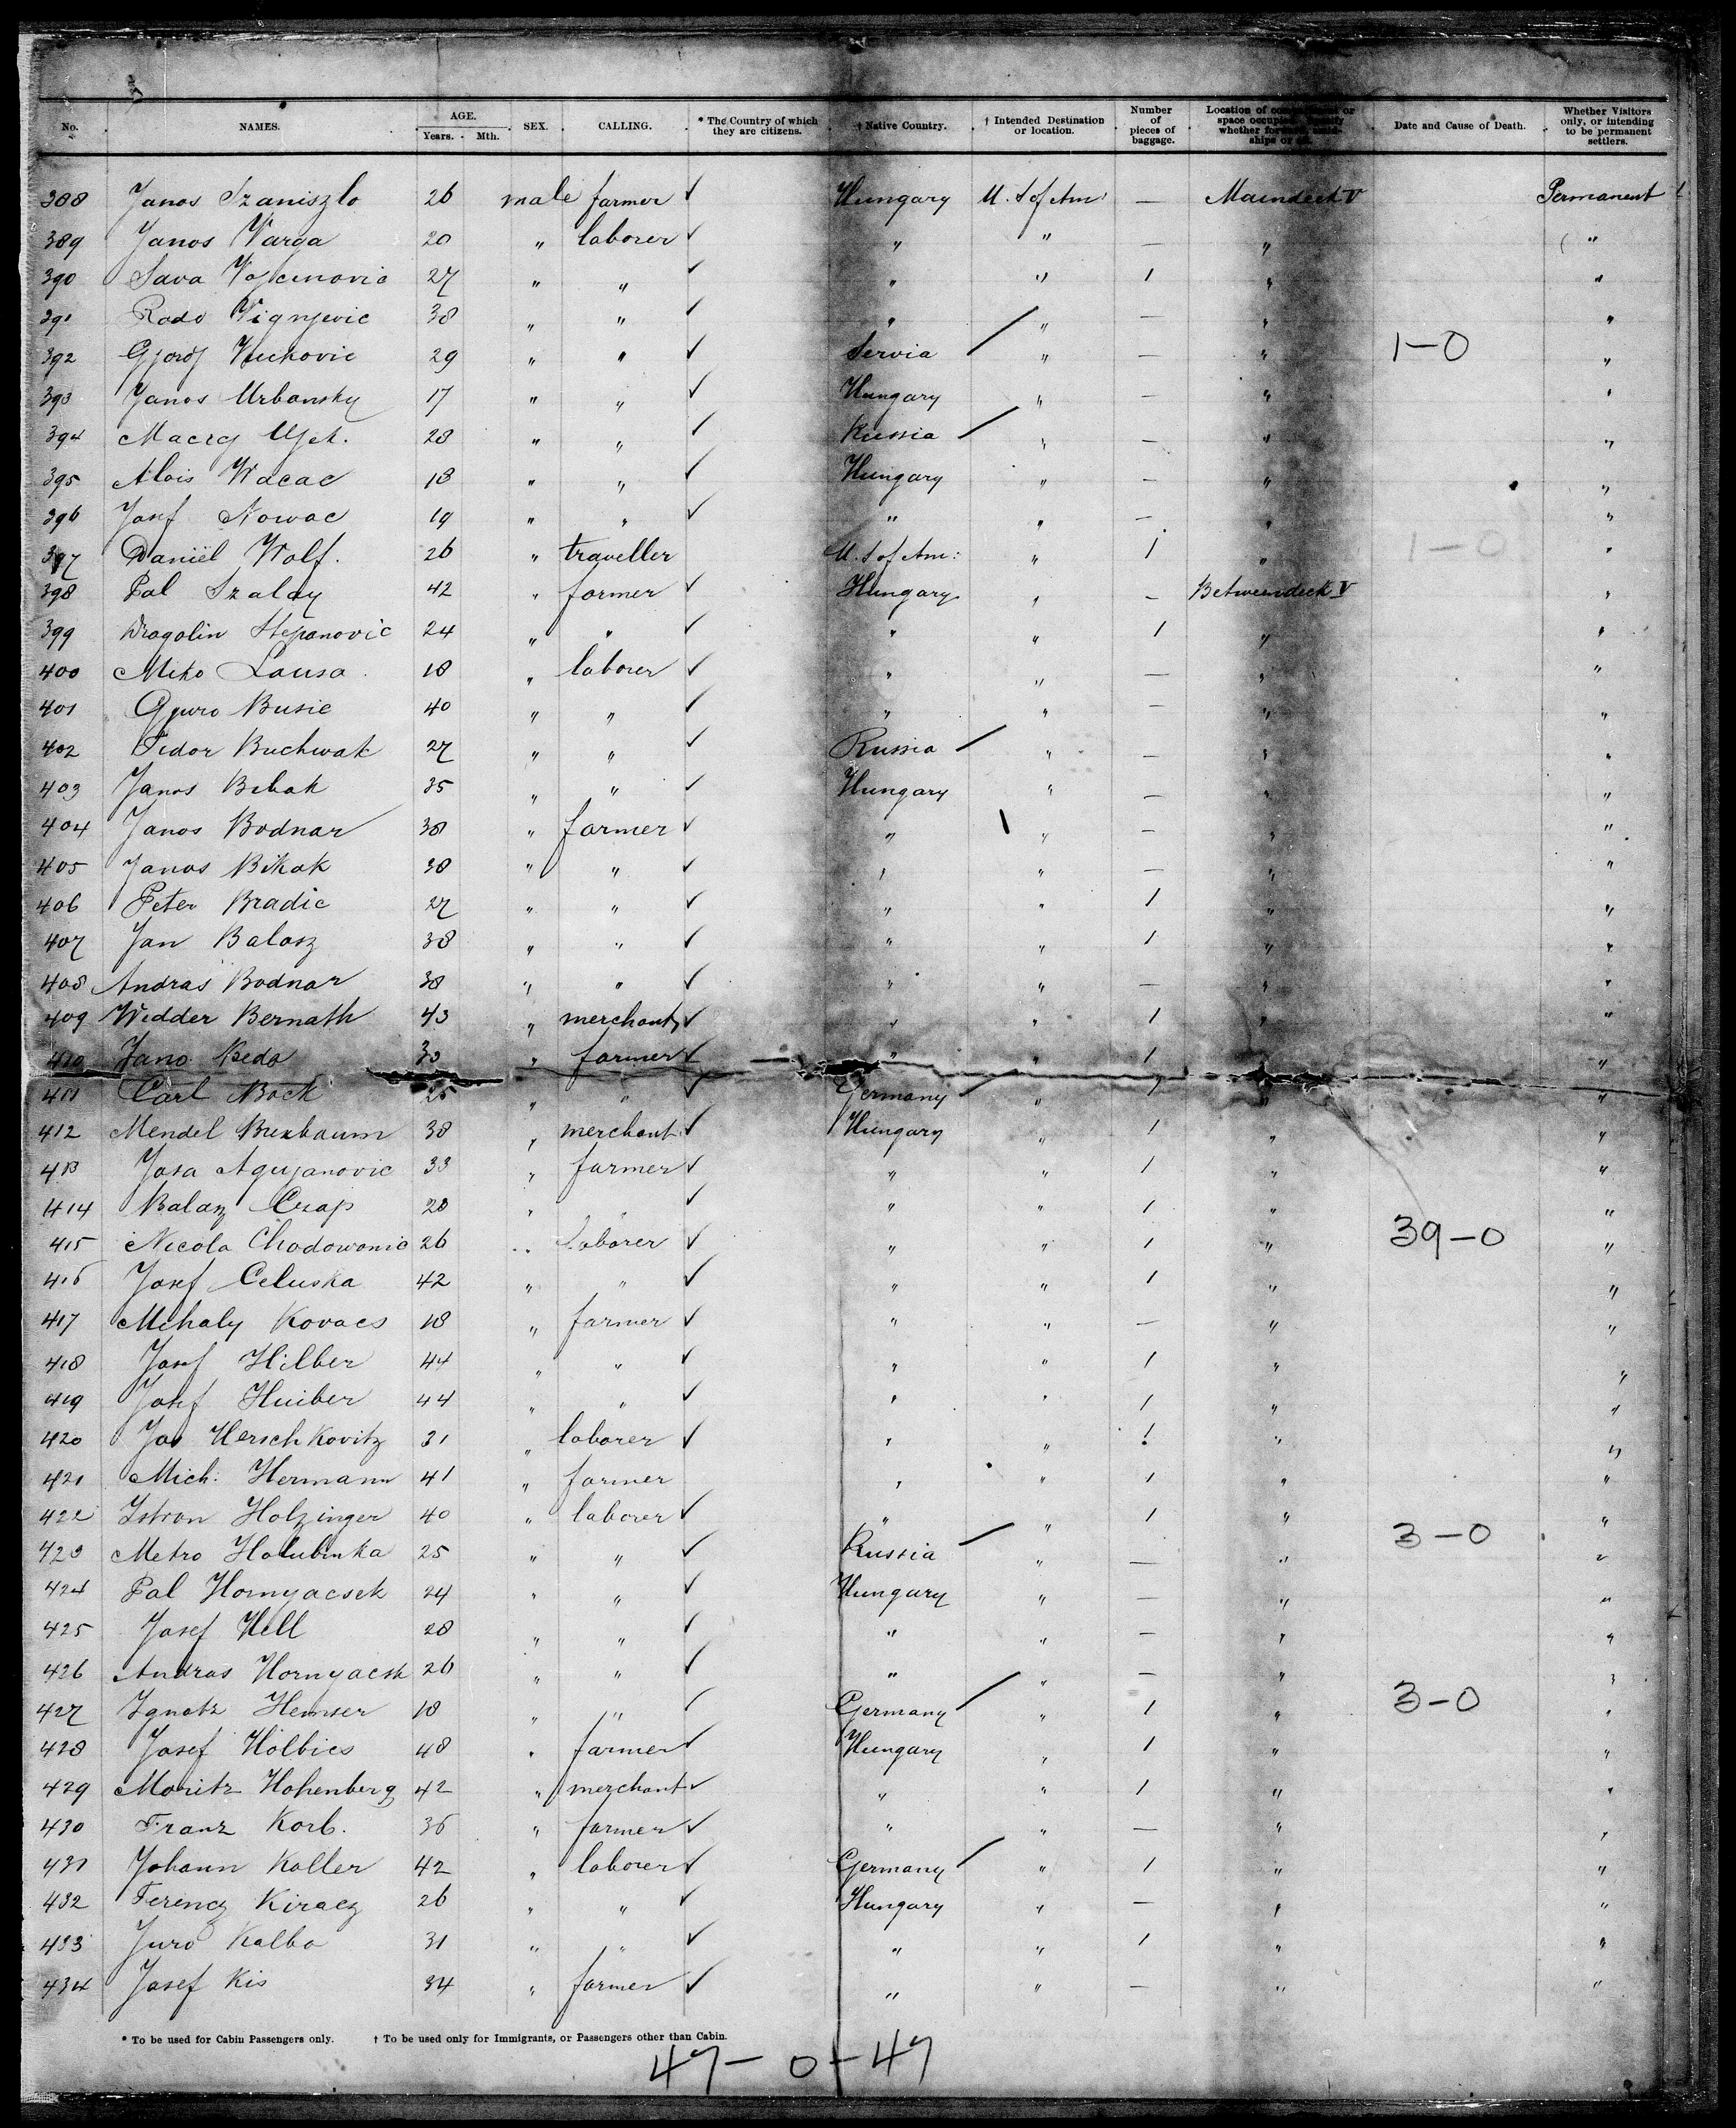 No. NAMES. AGE. Years. Mth. SEX. CALLING. * The Country of which they are citizens. † Native Country. † Intended Destination or location. Number of pieces of baggage. Location of compartment or space occupied Date and Cause of Death. Whether Visitors only, or intending to be permanent settlers.
388 Janos Szaniszlo 26 male farmer ✓ Hungary U. S of Am: — Maindeck V Permanent
389 Janos Varga 20 " laborer ✓ " " — " "
390 Sava 27 " " ✓ " " 1 " "
391 Rado Vignjevic 38 " " ✓ " " — " "
392 Gjorgj Vuckovic 29 " " ✓ Servia " — " 1-0 "
393 Janos Urbansky 17 " " ✓ Hungary " — " "
394 28 " " ✓ Russia " — " "
395 Alois Wacac 18 " " ✓ Hungary " — " "
396 Josef Nowac 19 " " ✓ " " — " "
397 Daniël Wolf. 26 " traveller U. S of Am: " 1 " 1-0 "
398 Pal Szalay 42 " farmer ✓ Hungary " — Betweendeck V "
399 Dragolin Stepanovic 24 " " ✓ " " 1 " "
400 Miko Lausa 18 " laborer ✓ " " — " "
401 Gjuro Busic 40 " " ✓ " " — " "
402 Fidor Buchwak 27 " " ✓ Russia " — " "
403 Janos Bibak 35 " " ✓ Hungary " — " "
404 Janos Bodnar 38 " farmer ✓ " " — " "
405 Janos Bikak 38 " " ✓ " " — " "
406 Peter Bradic 27 " " ✓ " " 1 " "
407 Jan Balasz 38 " " ✓ " " 1 " "
408 Andras Bodnar 38 " " ✓ " " — " "
409 Widder Bernath 43 " merchant ✓ " " 1 " "
410 Jano Beda 30 " farmer ✓ " " 1 " "
411 Carl Bock 25 " " ✓ Germany " 1 " "
412 Mendel Buxbaum 38 " merchant ✓ Hungary " 1 " "
413 Josa Agujanovic 33 " farmer ✓ " " 1 " "
414 Balaz Csap 28 " " ✓ " " 1 " "
415 Nicola Chodowanic 26 " laborer ✓ " " 1 " 39-0 "
416 Josef Celuska 42 " " ✓ " " 1 " "
417 Mihaly Kovacs 18 " farmer ✓ " " — " "
418 Josef Hilber 44 " " ✓ " " 1 " "
419 Josef Huiber 44 " " ✓ " " 1 " "
420 Jos Herschkovitz 31 " laborer ✓ " " 1 " "
421 Mich: Hermann 41 " farmer " " 1 " "
422 Istvan Holzinger 40 " laborer ✓ " " 1 " "
423 Metro Holubinka 25 " " ✓ Russia " — " 3-0 "
424 Pal Hornyacsek 24 " " ✓ Hungary " — " "
425 Josef Hell 28 " " ✓ " " — " "
426 Andras Hornyacsk 26 " " ✓ " " — " "
427 Ignatz Hemser 18 " " ✓ Germany " 1 " 3-0 "
428 Josef Holbics 48 " farmer ✓ Hungary " 1 " "
429 Moritz Hohenberg 42 " merchant ✓ " " 1 " "
430 Franz Korb. 36 " farmer ✓ " " — " "
431 Johann Koller 42 " laborer ✓ Germany " 1 " "
432 Ferencz Kiracz 26 " " ✓ Hungary " — " "
433 Juro Kalba 31 " " ✓ " " 1 " "
434 Josef Kis 34 " farmer ✓ " " — " "
* To be used for Cabin Passengers only. † To be used only for Immigrants, or Passengers other than Cabin.
47-0-47